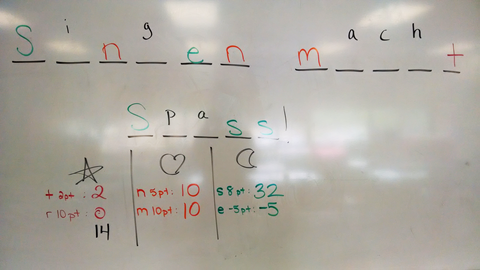 Singen macht
Spass!
t 2pt: 2
r 10pt: 0
14
n 5pt: 10
m 10pt: 10
s 8pt: 32
e -5pt: -5